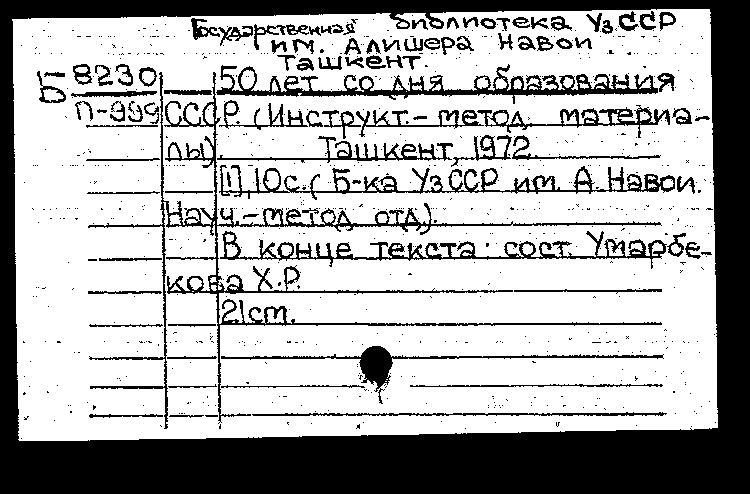 Государственная библиотека УзССР
им. Алишера Навои
Ташкент.
Б-8230 50 лет со дня образования
П-999 СССР. (Инструкт.-метод. материа-
лы). Ташкент, 1972.
[1], 10с. ( Б-ка УзССР им. А. Навои.
Науч.-метод. отд.).
В конце текста: сост. Умарбе-
кова Х.Р.
21 см.